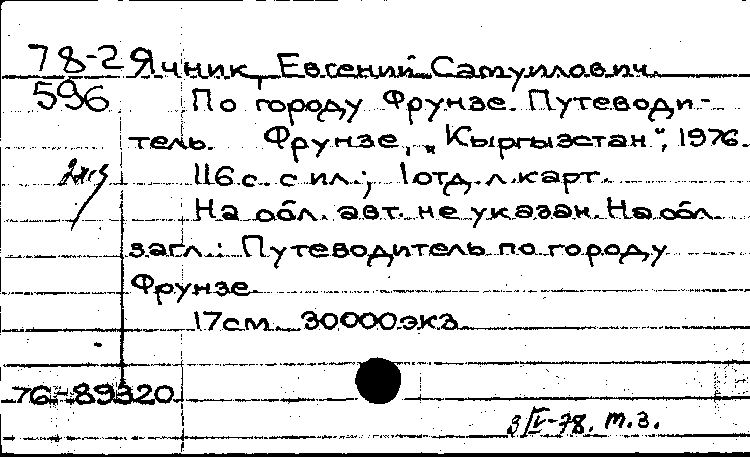 78-2 Ячник, Евгений Самуилович.
596 По городу Фрунзе. Путеводи-
тель. Фрунзе, "Кыргызстан", 1976.
116 с. с ил.; 1 отд. л. карт.
На обл. авт. не указан. На обл.
загл.: Путеводитель по городу
Фрунзе.
17 см. 30000 экз.
76-89320
3/IV-78. т.з.